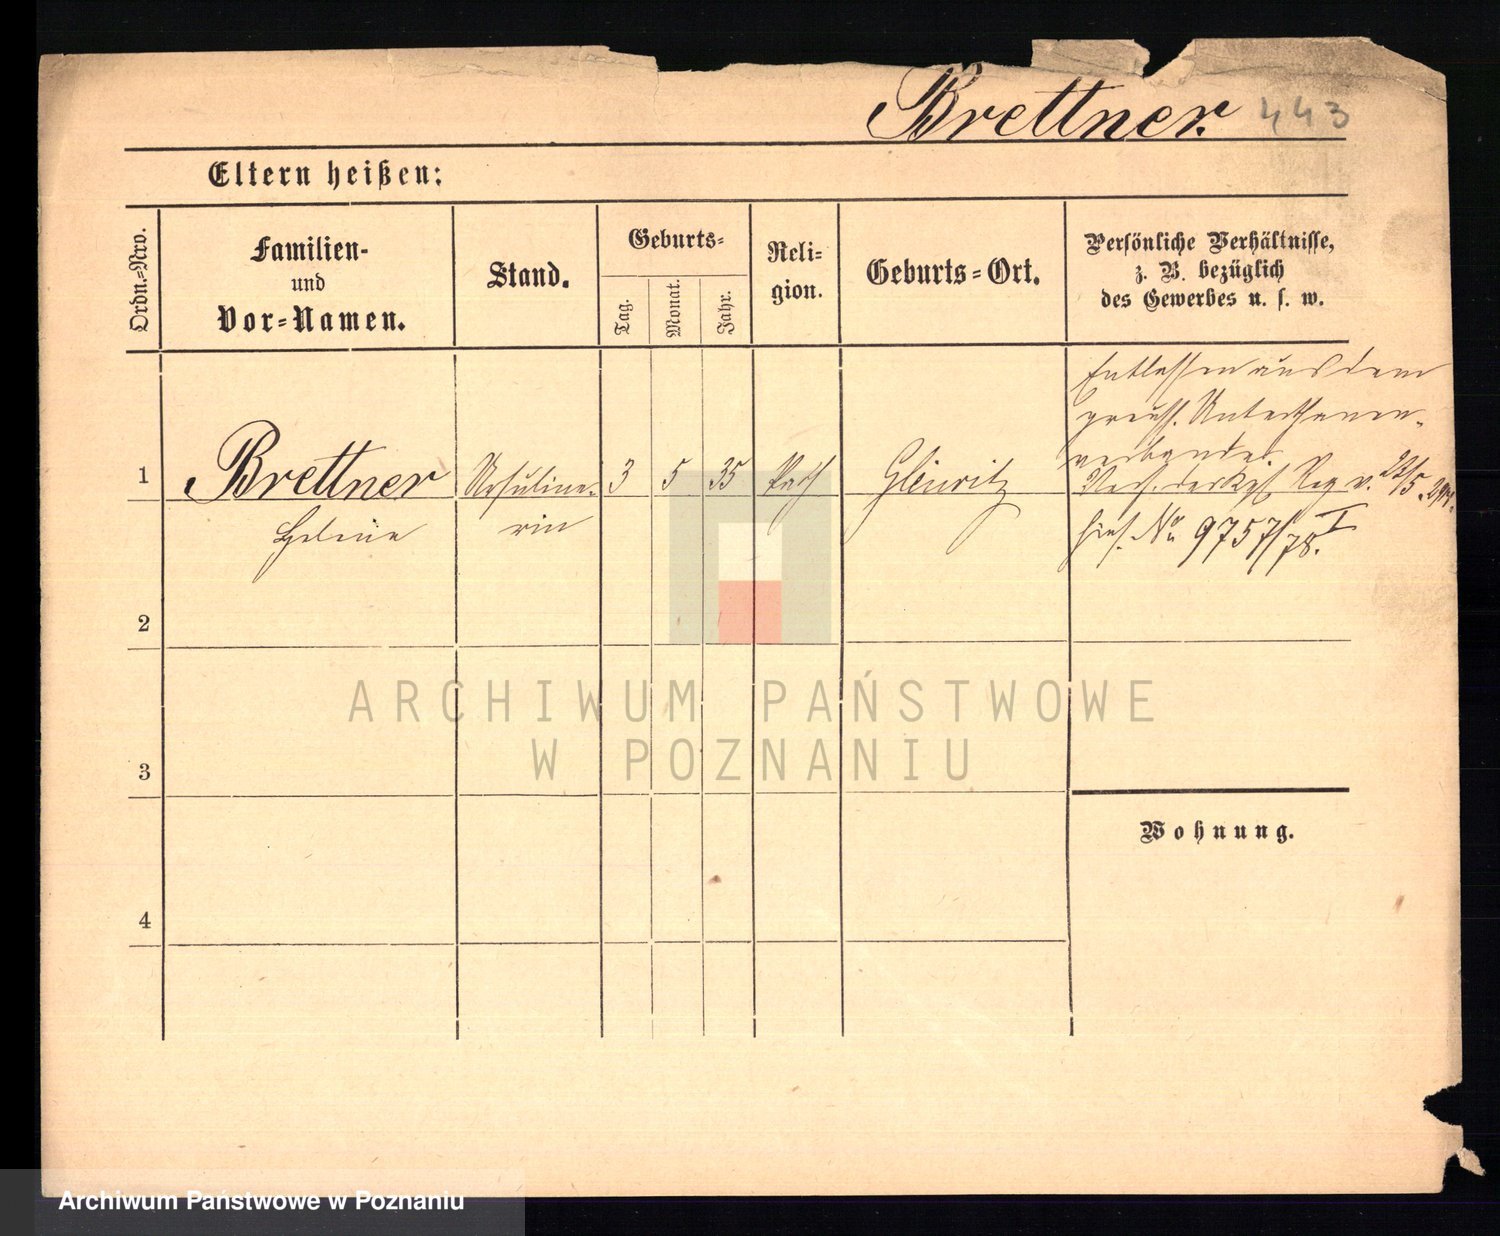 Brettner.
443
Eltern heißen:
Ordn.=Nro.
Familien-
und
Vor=Namen.
Stand.
Geburts=
Tag.
Monat.
Jahr.
Reli=
gion.
Geburts=Ort.
Persönliche Verhältnisse,
z. B. bezüglich
des Gewerbes u. s. w.
Entlassen aus dem
preuss. Unterthanen-
verbande
1 Brettner Ursuline- 3 5 35 kath Gleiwitz
Helene rin
der Kgl Reg v. 22/5.
No 9757/78. I
2
3
Wohnung.
4
ARCHIWUM PAŃSTWOWE
W POZNANIU
Archiwum Państwowe w Poznaniu